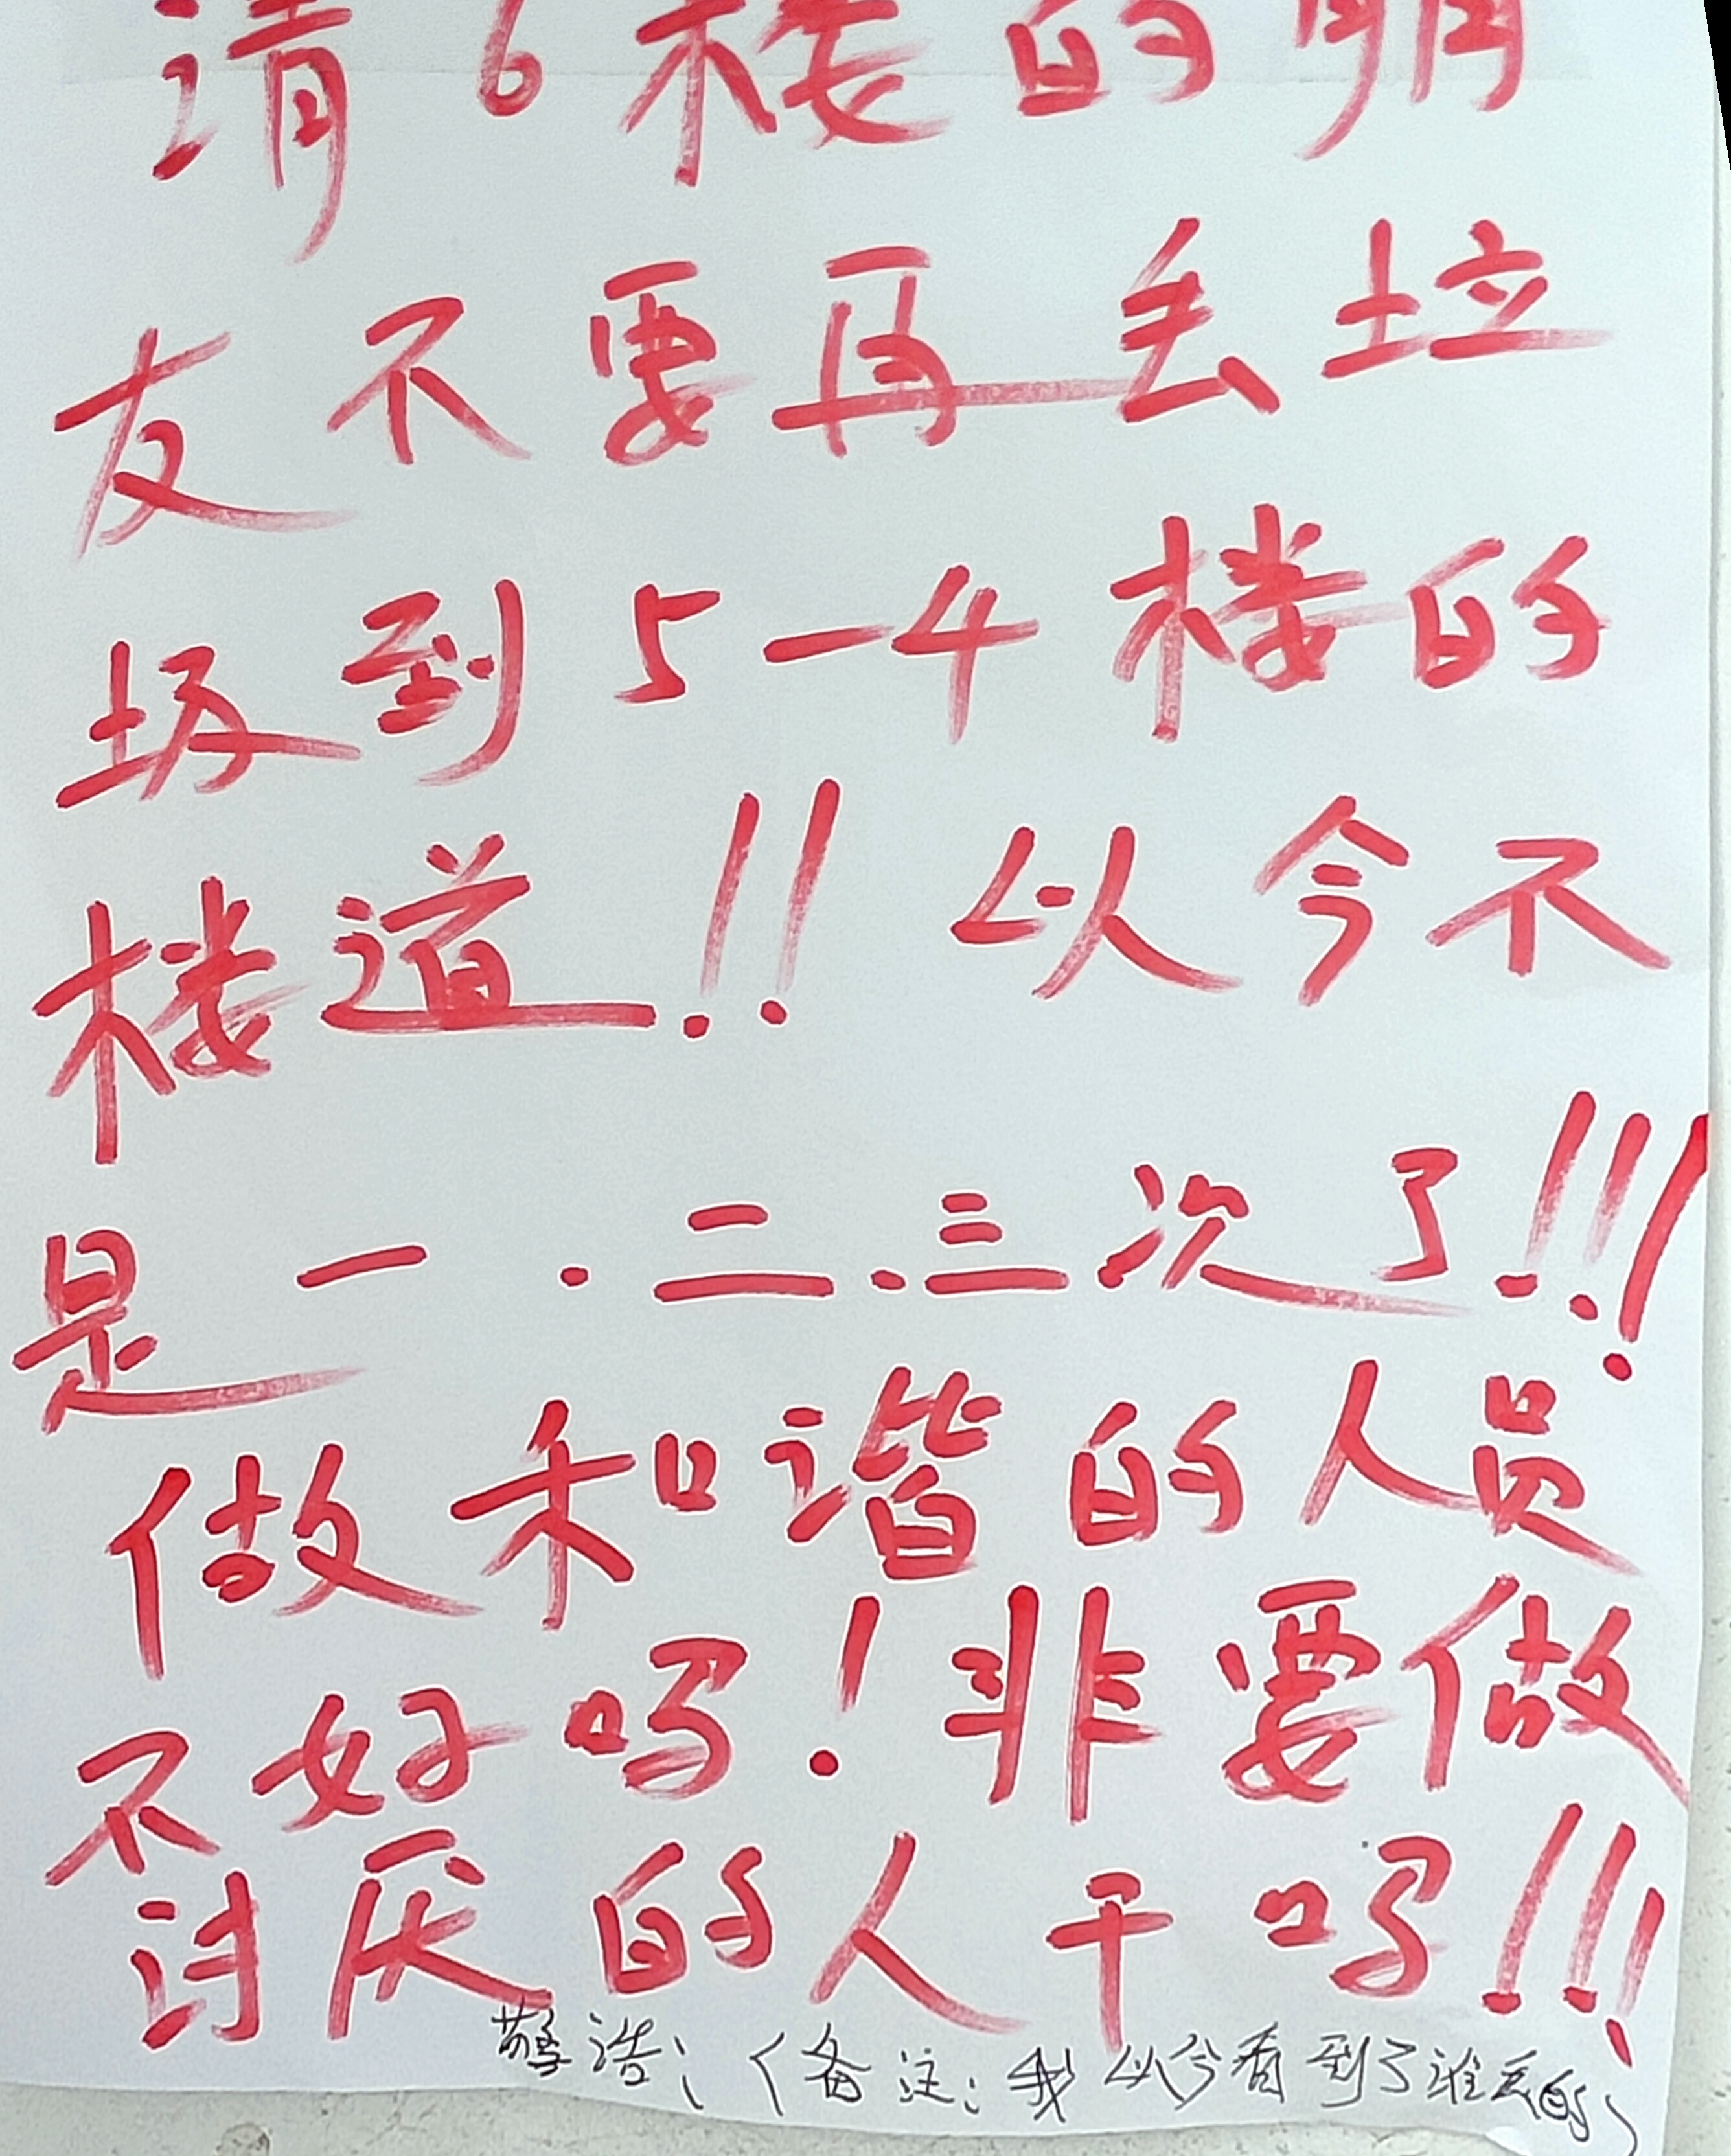 请6楼的朋
友不要再丢垃
圾到5-4楼的
楼道!! 以今不
是一.二.三次了!!!
做和谐的人员
不好吗!非要做
讨厌的人干吗!!!
警浩;(备注:我以今看到了谁丢的)